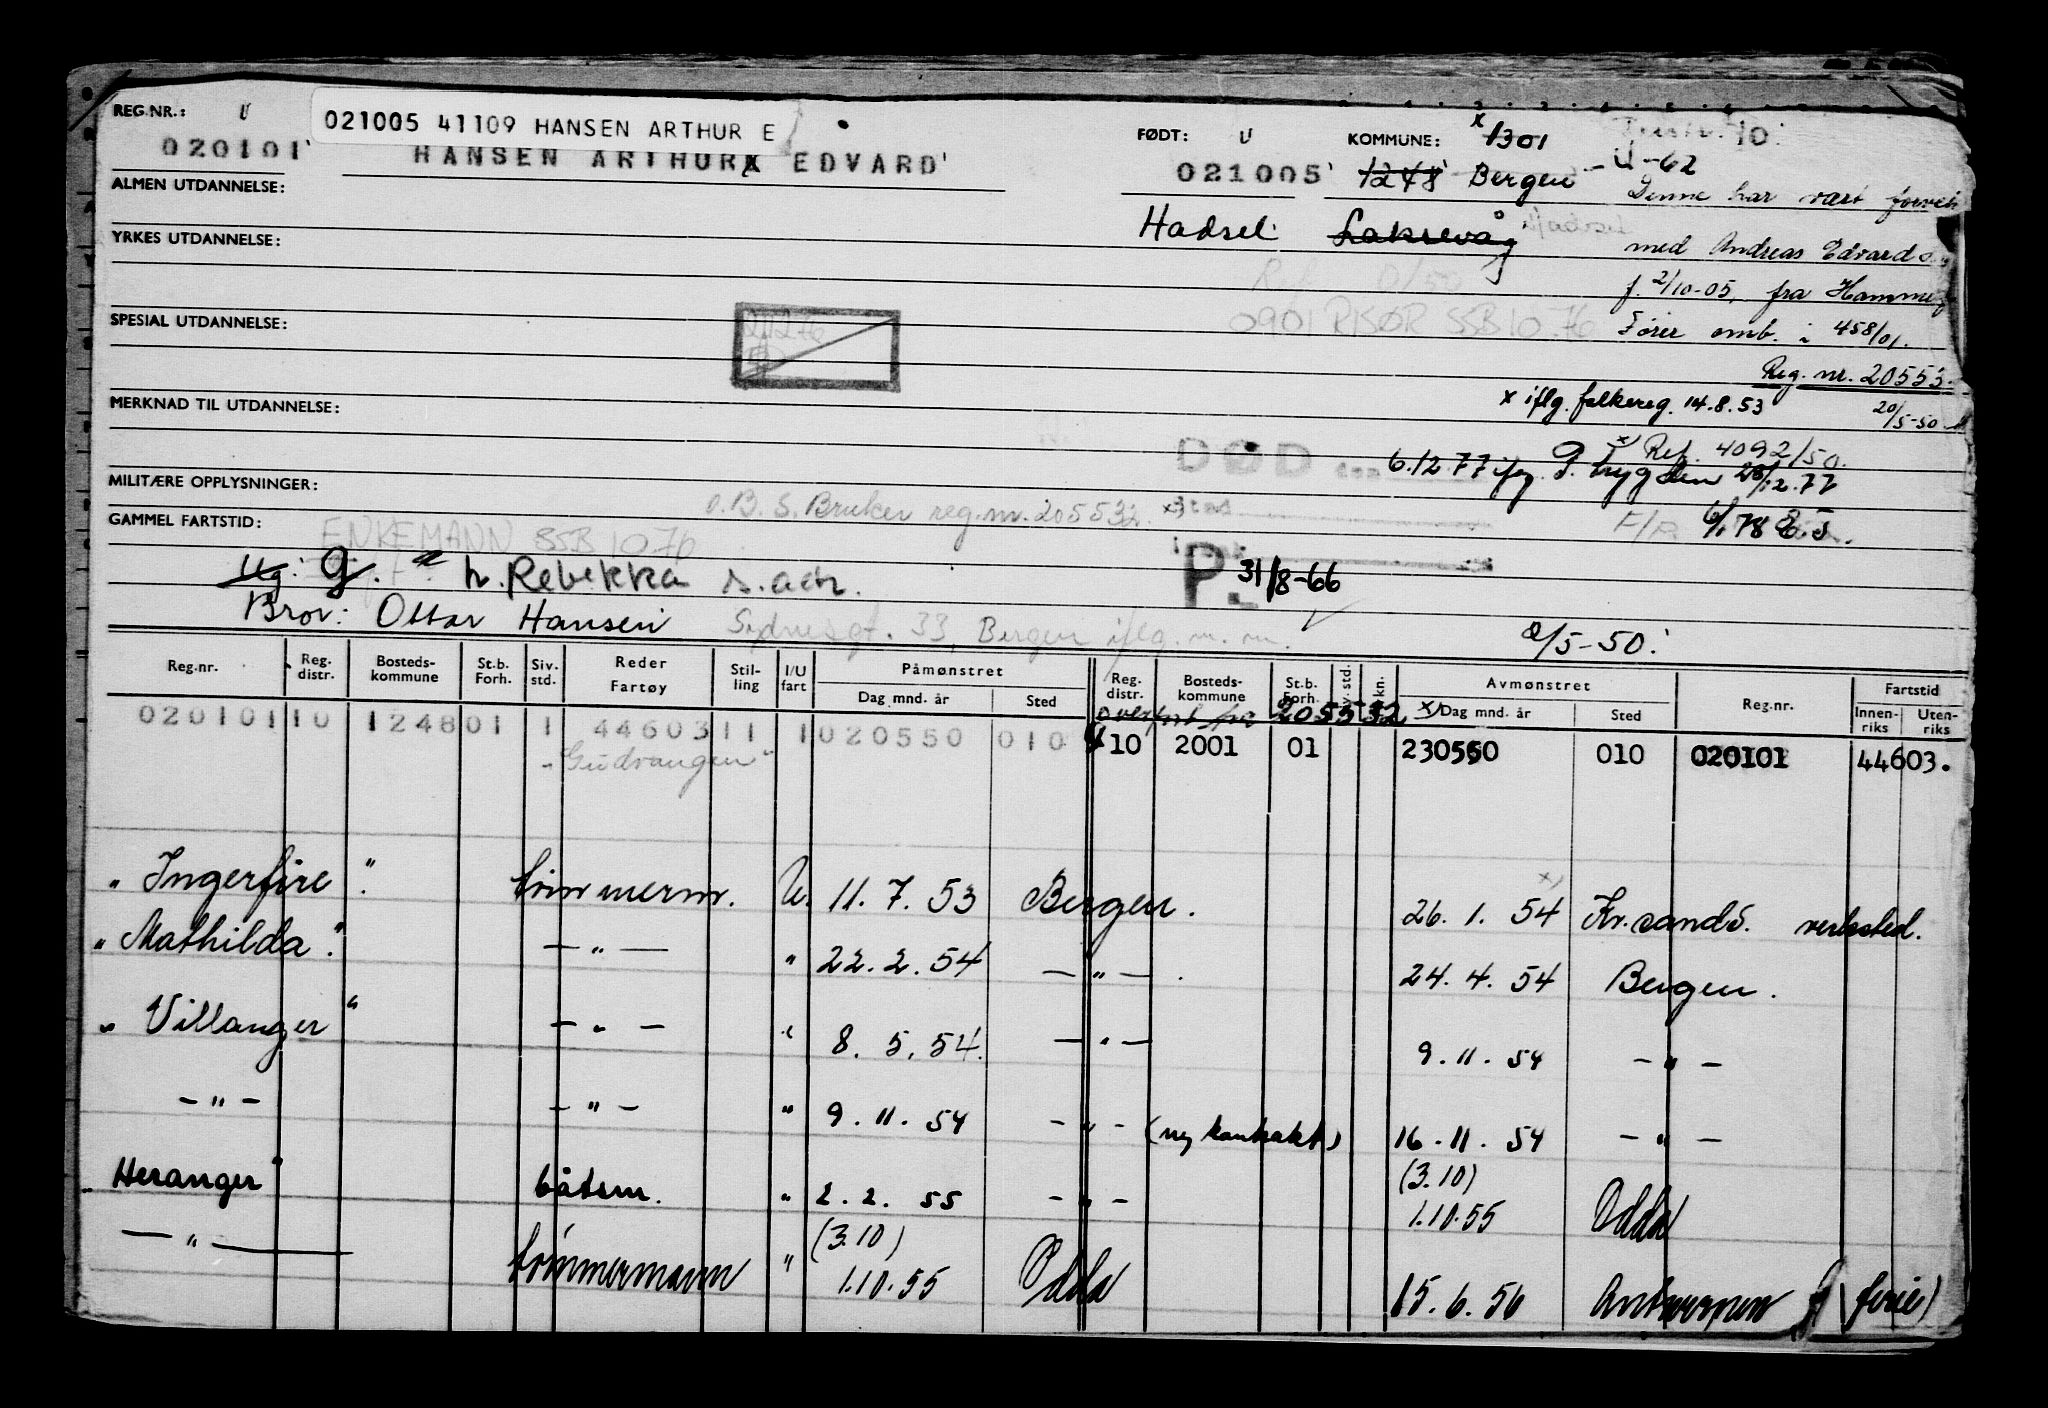 REG.NR.: U 021005 41109 HANSEN ARTHUR E FØDT: U KOMMUNE: x 1301
020101 HANSEN ARTHUR EDVARD 021005 1248 Bergen U-62
ALMEN UTDANNELSE: Denne har vært
Hadsel Laksevåg Hadsel
YRKES UTDANNELSE: med Andreas Edvard
f. 2/10-05, fra
0901 RISØR SSB 10.76
SPESIAL UTDANNELSE: Fører omb. i 458/01.
Reg. nr. 20553
x iflg. folkereg. 14.8.53
MERKNAD TIL UTDANNELSE: 20/5-50
x) Ref. 4092/50.
DØD 6.12.77 iflg.
MILITÆRE OPPLYSNINGER:
o.B.S. Bruker reg.nr. 205532
GAMMEL FARTSTID:
ENKEMANN SSB 10 76
Ug: G. h. Rebekka s. adr. P 31/8-66
Bror: Ottar Hansen Sydnesgt. 33, Bergen iflg. m.m. 2/5-50.
Reg.nr. Reg. distr. Bosteds-kommune St.b. Forh. Siv. std. Reder Fartøy Stil-ling I/U fart Påmønstret Dag mnd. år Sted Reg. distr. Bosteds-kommune St.b. Forh. Avmønstret Dag mnd. år Sted Reg.nr. Fartstid Innen-riks Uten-riks
overført fra 205532 x)
020101 10 1248 01 1 44603 11 1 020550 010 10 2001 01 230550 010 020101 44603.
"Gudvangen"
"Ingerfire" tømmerm. U. 11. 7. 53 Bergen. 26. 1. 54 Kr.sand S. verksted.
"Mathilda" — " — " 22. 2. 54 — " — 24. 4. 54 Bergen.
"Villanger" — " — " 8. 5. 54. — " — 9. 11. 54 — " —
— " — — " — " 9. 11. 54 — " — (ny kontrakt) 16. 11. 54 — " —
"Heranger" båtsm. " 2. 2. 55 — " — (3.10) 1.10.55 Odda
— " — tømmermann " (3.10) 1.10.55 Odda 15. 6. 56 Antwerpen (ferie)